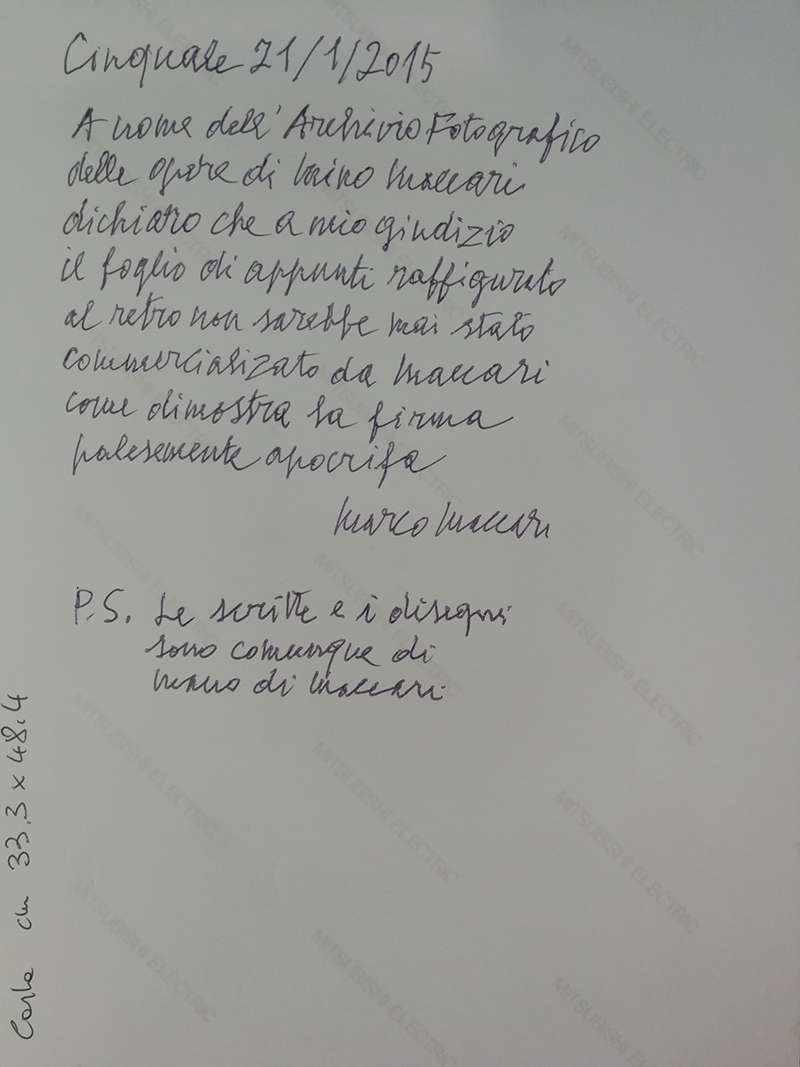 Cinquale 21/1/2015
A nome dell'Archivio Fotografico
delle opere di Mino Maccari
dichiaro che a mio giudizio
il foglio di appunti raffigurato
al retro non sarebbe mai stato
commercializato da Maccari
come dimostra la firma
palesemente apocrifa
Marco Maccari
P.S. Le scritte e i disegni
sono comunque di
mano di Maccari
Carta cm 33,3 x 48.4
MITSUBISHI ELECTRIC